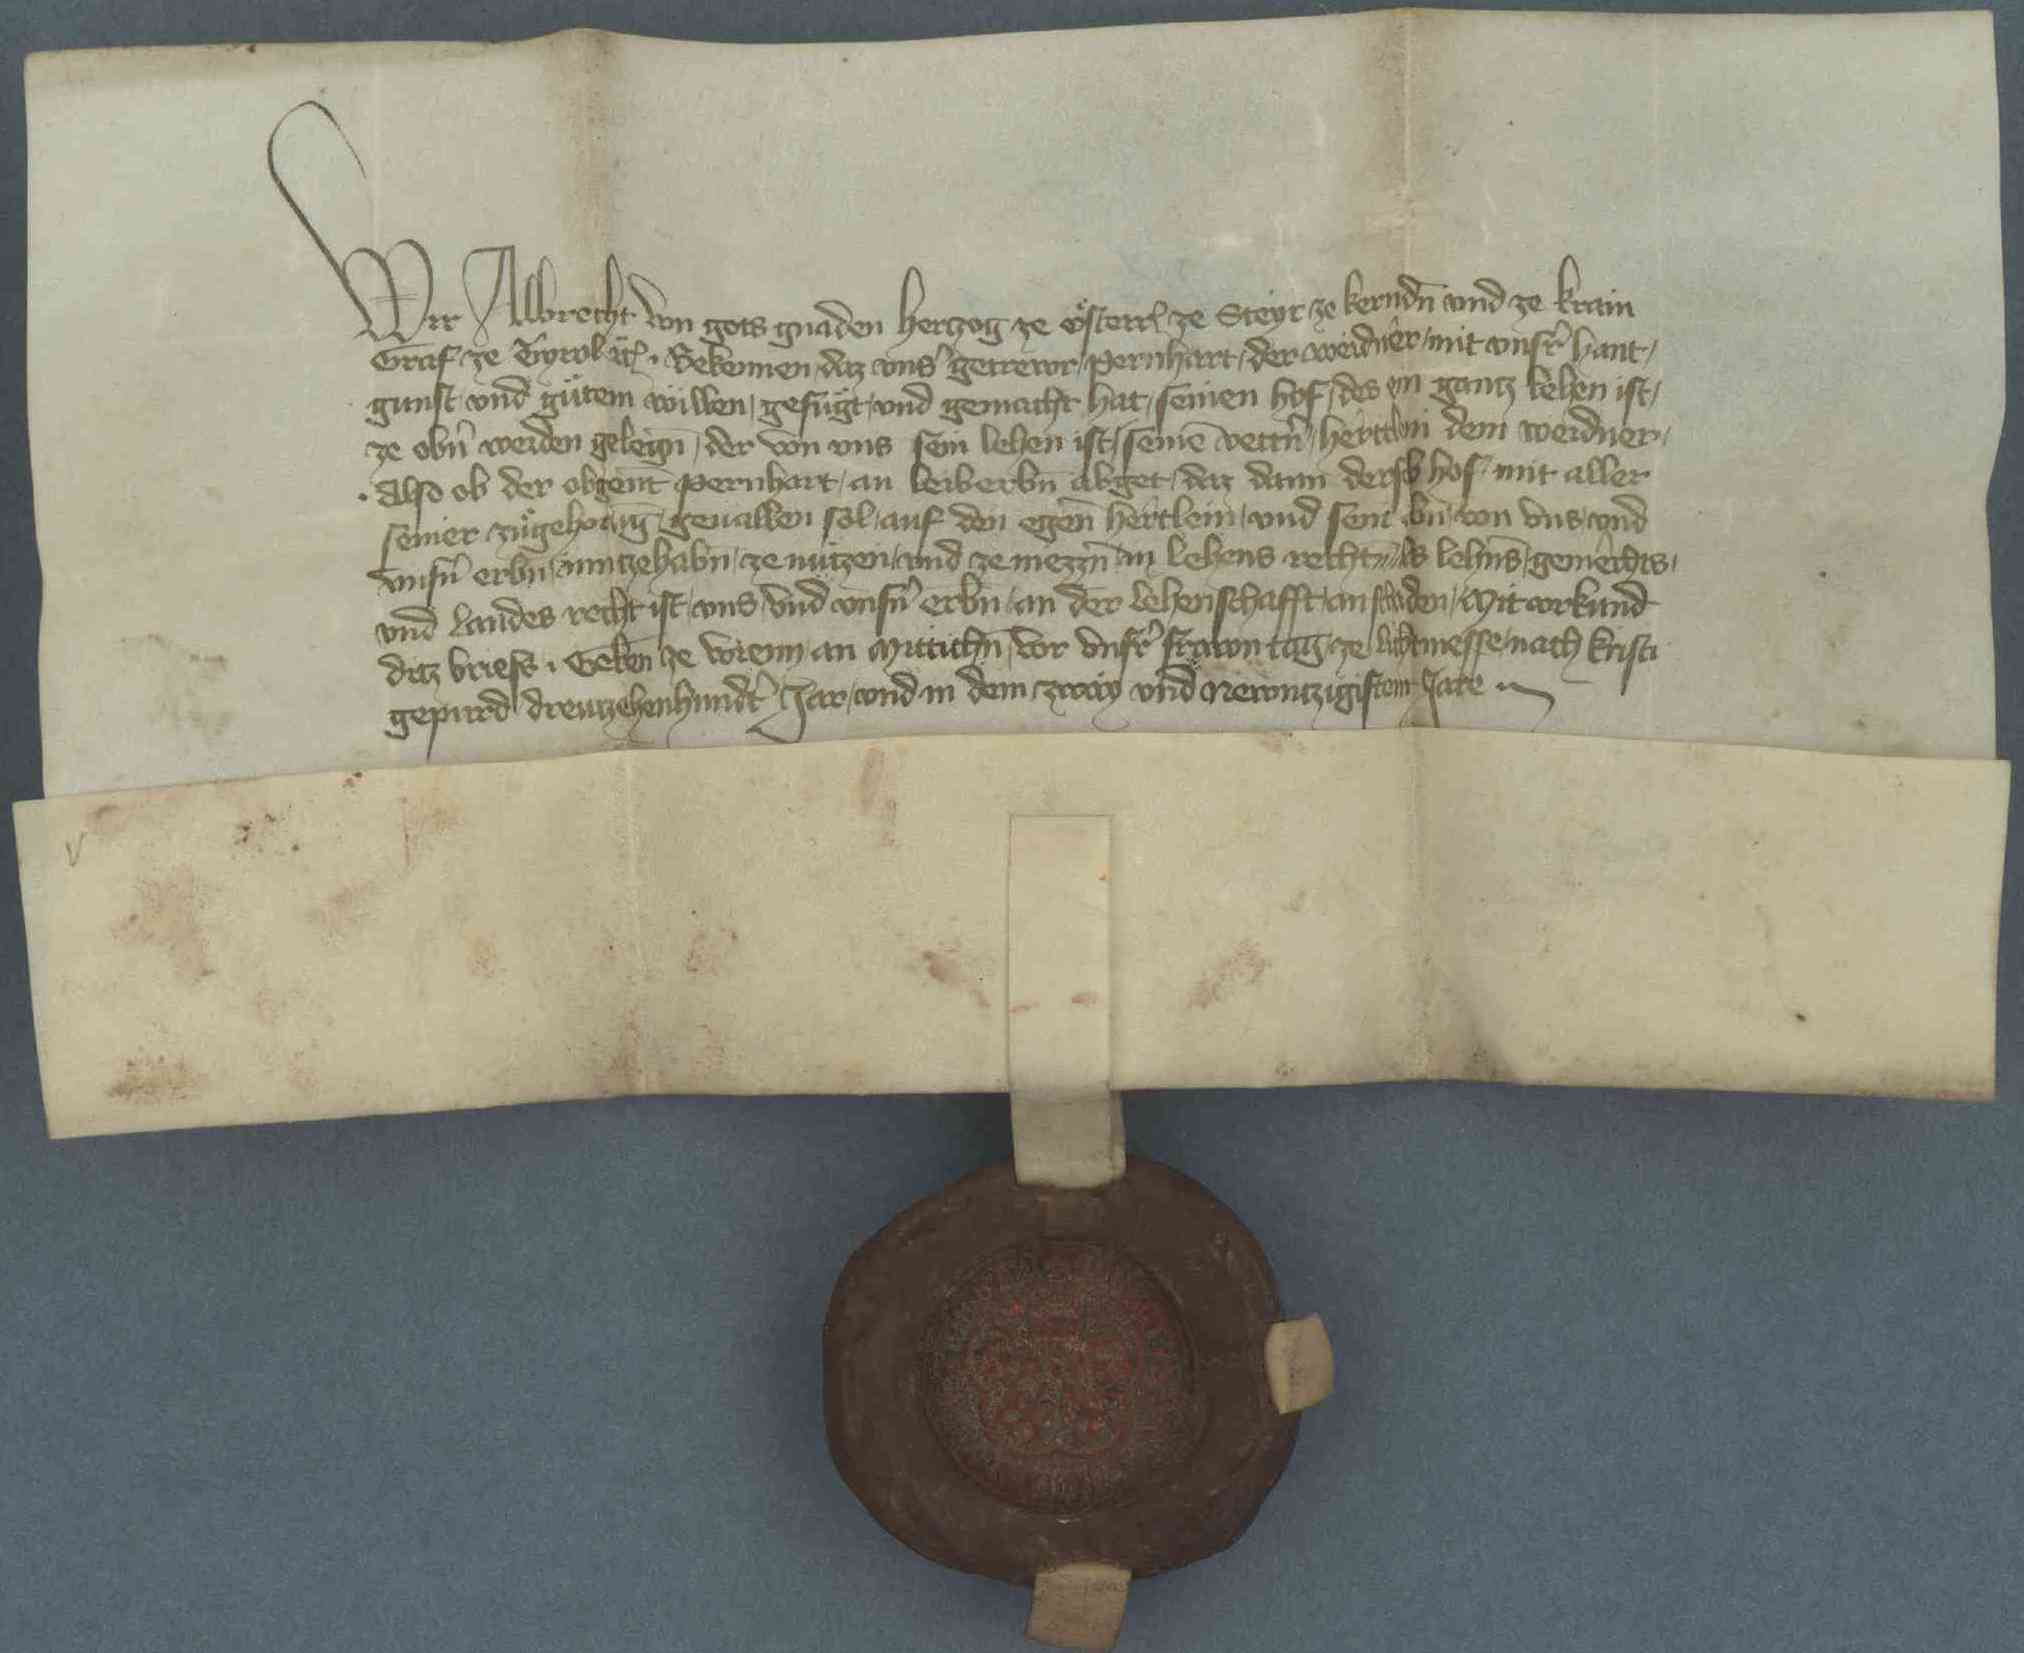 Wir Albrecht von gots gnaden Herczog ze Österr̃ ze Steyr ze kerndn̄ vnd ze krain
Graf ze Tyrol ꝛc̃. Bekennen, daz vns̾ getrewr, Pernhart, der weidner, mit vnsr̾ hant,
gunst vnd gůtem willen, gefügt, vnd gemacht hat, seinen hof, des ein gantz lehen ist,
ze obn̄ weiden gelegn̄, der von vns sein lehen ist, seinē vettn̾, hertlein dem weidner,
Also ob der obgent̄ Pernhart, an leiberbn̄ abget, daz dann derselb hof, mit aller
seiner zůgehorūg, geuallen sol, auf den egen̄ hertlein, vnd sein erbn̄, von vns, vnd
vnsn̾ erbn̄, Inntzehabn̄, ze nützen, vnd ze niezzn̄ in lehens rechtn̄, als lehns, gemechts,
vnd landes recht ist, vns, vnd vnsn̾ erbn̄, an der lehenschafft, an schaden, Mit vrkund
ditz briefs. Geben ze wienn, an Mittichn̄, vor vnsr̾ frawn tag, ze liechtmesse, nach krists
gepurd dreutzehenhundt̾ Jar, vnd in dem zway vnd Newntzigistem Jare